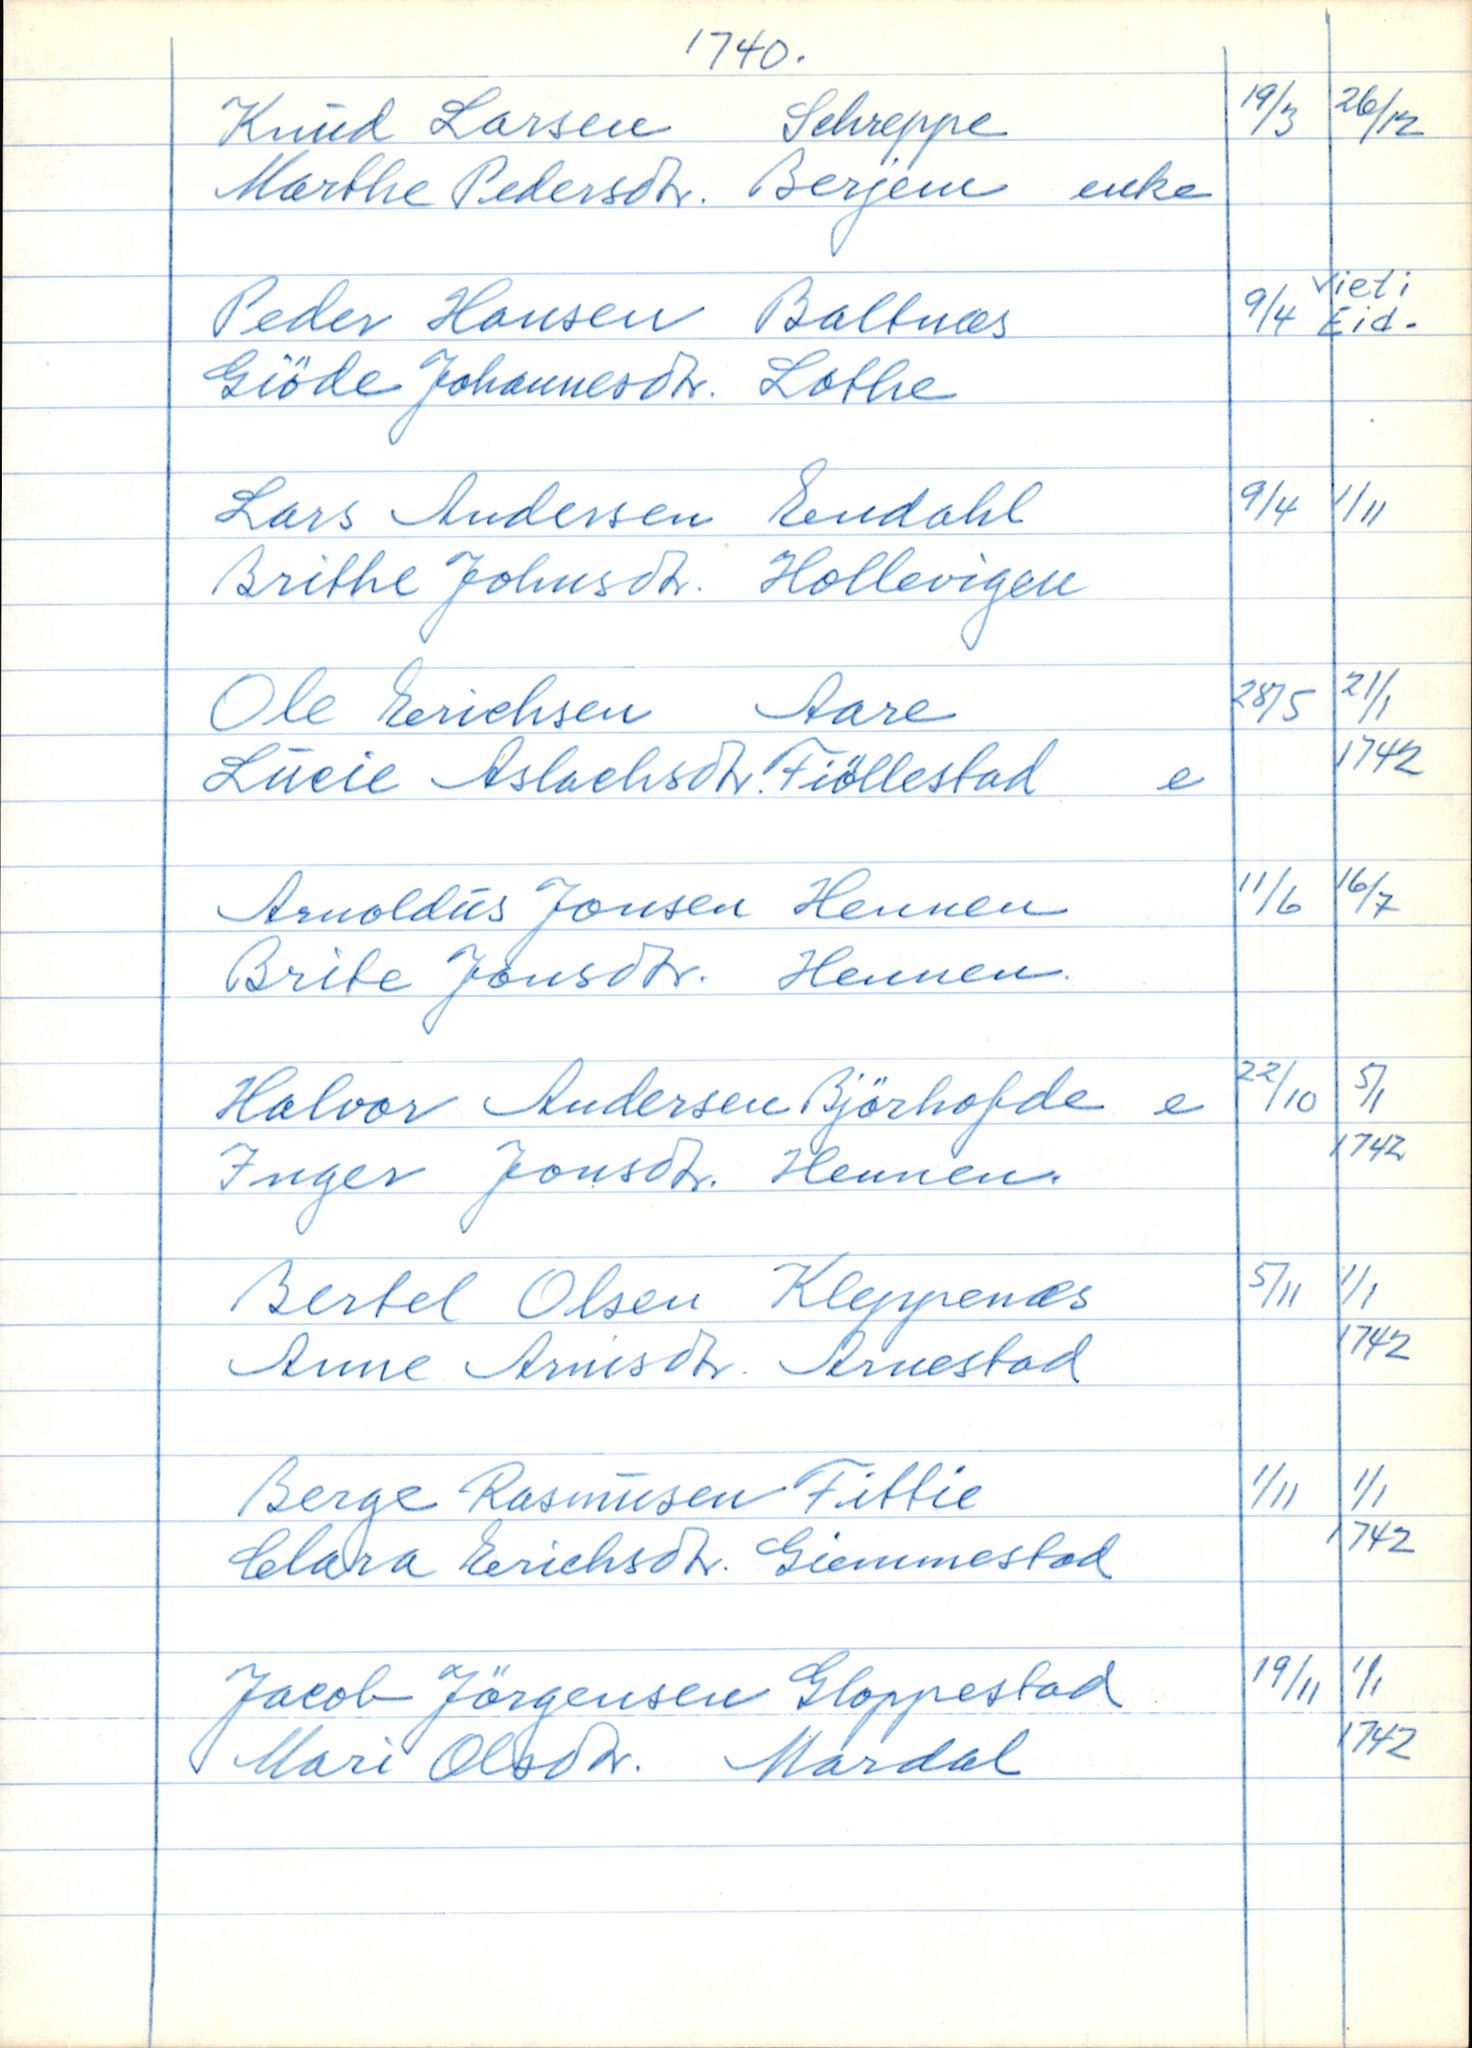 1740.
Knud Larsen Schreppe 19/3 26/12
Marthe Pedersdtr. Berjem enke
Peder Hansen Baltnæs 9/4 viet i Eid.
Giöde Johannesdtr. Lothe
Lars Andersen Eendahl 9/4 1/11
Brithe Johnsdtr. Hollevigen
Ole Erichsen Aare 28/5 21/1
Lucie Aslachsdtr. Fiöllestad e 1742
Arnoldus Jonsen Hennen 11/6 16/7
Brite Jonsdtr. Hennen.
Halvor Andersen Björhofde e 22/10 5/1
Inger Jonsdtr. Hennen. 1742
Bertel Olsen Kleppenæs 5/11 1/1
Anne Arnisdtr. Arnestad 1742
Berge Rasmusen Fittie 1/11 1/1
Clara Erichsdtr. Giemmestad 1742
Jacob Jörgensen Gloppestad 19/11 1/1
Mari Olsdtr. Mardal 1742